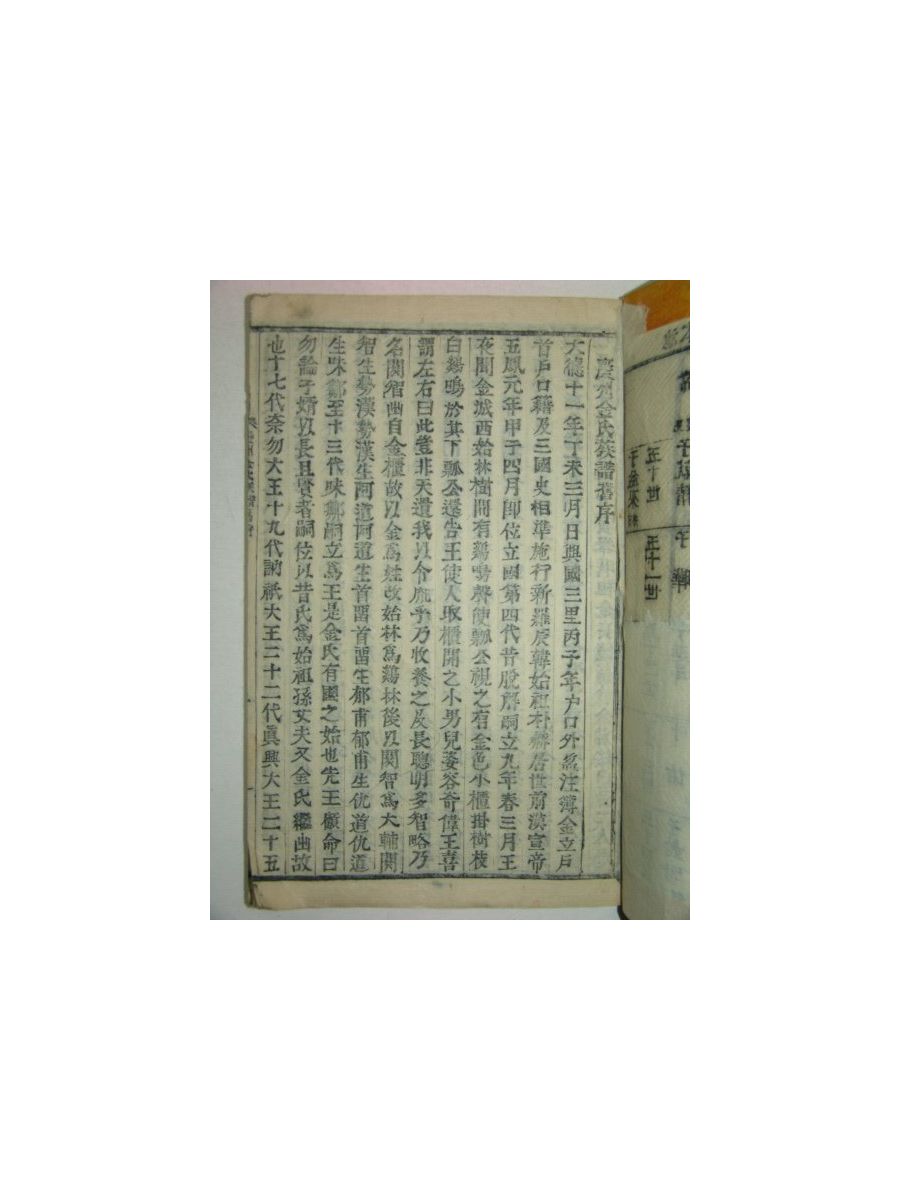 慶州金氏族譜舊序
大德十一年丁未三月日興國三里丙子年戶口外盈注簿金立戶
首戶口籍及三國史相準施行新羅辰韓始祖朴赫居世前漢宣帝
五鳳元年甲子四月卽位立國第四代昔脫解嗣立九年春三月王
夜聞金城西始林樹間有鷄鳴聲使瓢公視之有金色小櫃掛樹枝
白鷄鳴於其下瓢公還告王使人取櫃開之小男兒姿容奇偉王喜
謂左右曰此豈非天遺我以令胤乎乃收養之及長聰明多智略乃
名閼智出自金櫃故以金爲姓改始林爲鷄林後以閼智爲大輔閼
智生勢漢勢漢生阿道阿道生首留首留生郁甫郁甫生仇道仇道
生味鄒至十三代味鄒嗣立爲王是金氏有國之始也先王顧命曰
勿論子婿以長且賢者嗣位以昔氏爲始祖孫女夫又金氏繼出故
也十七代奈勿大王十九代訥祇大王二十二代眞興大王二十五
五十世
子金
五十一世
子